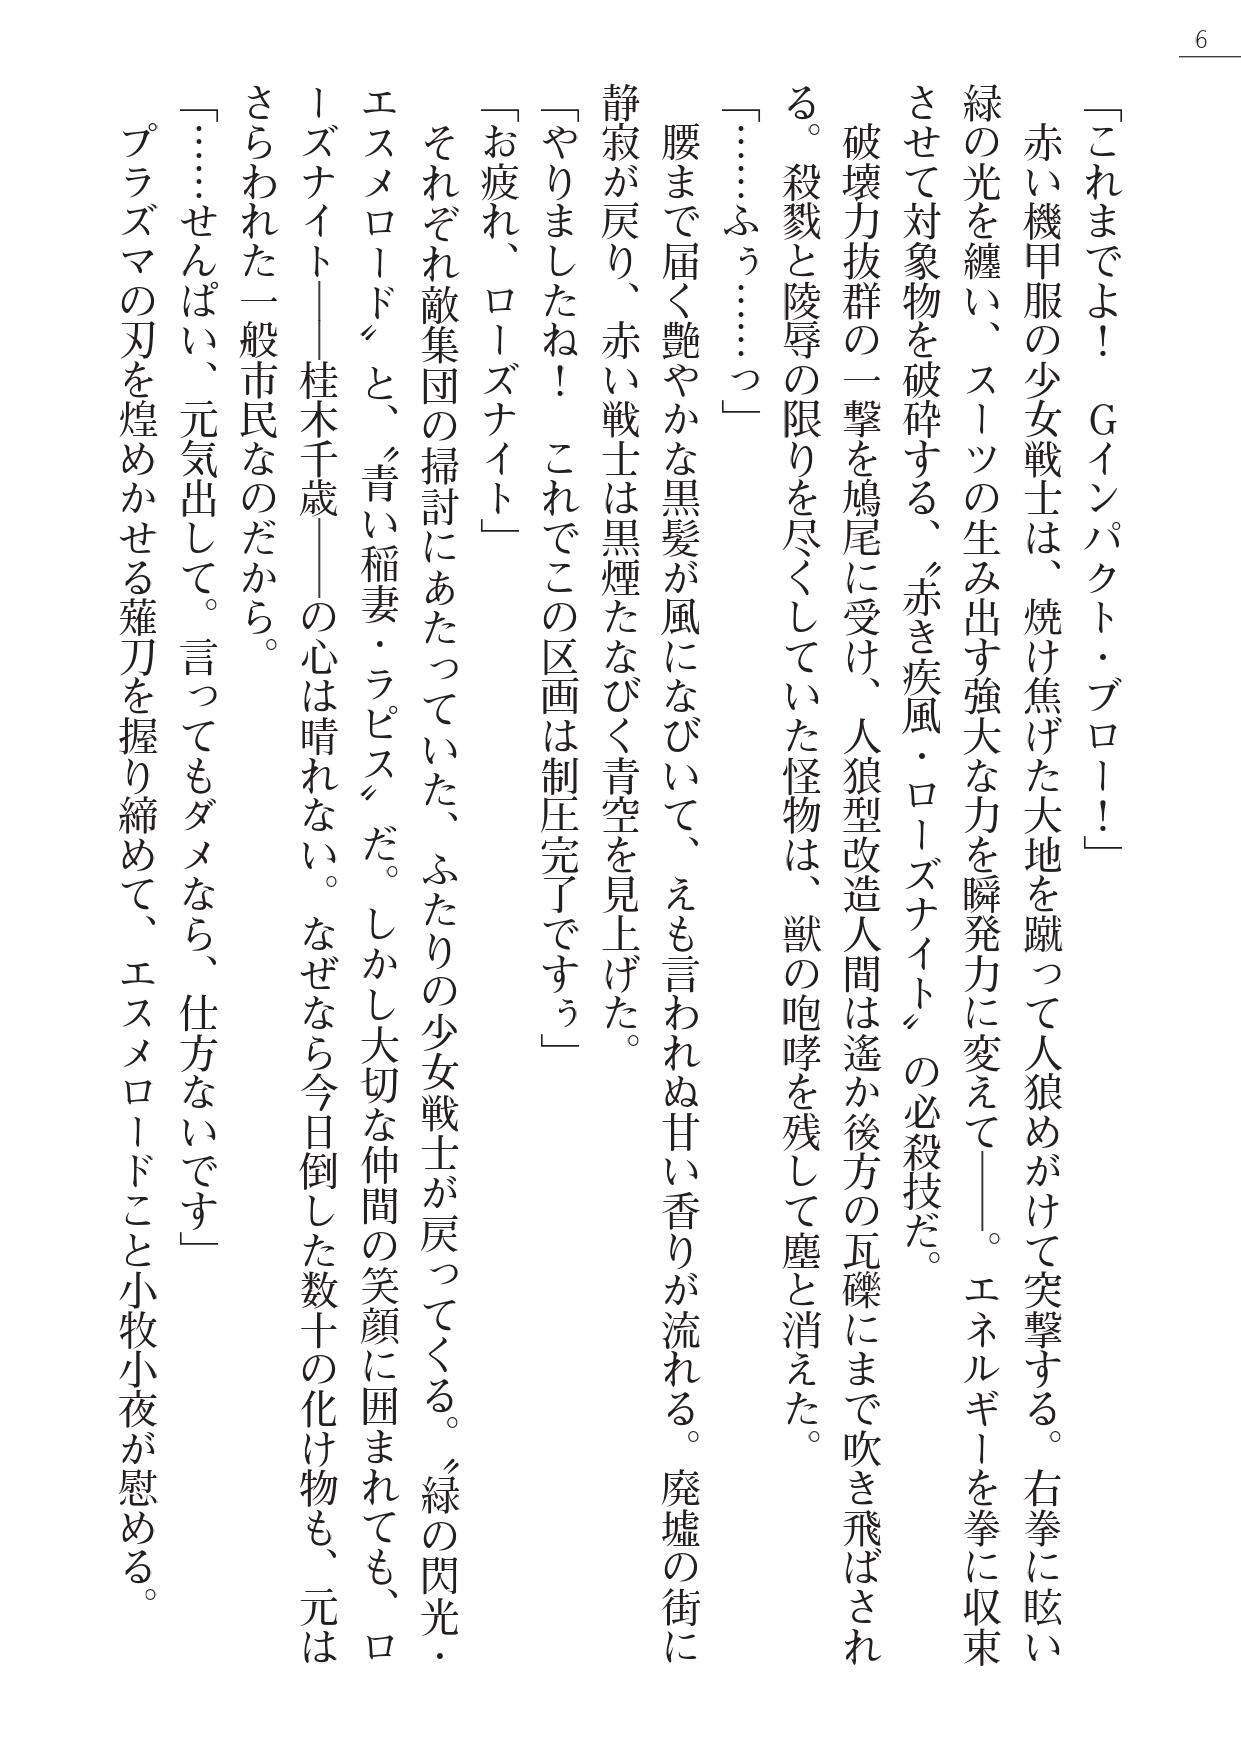 6
「これまでよ！　Gインパクト・ブロー！」
　赤い機甲服の少女戦士は、焼け焦げた大地を蹴って人狼めがけて突撃する。右拳に眩い
緑の光を纏い、スーツの生み出す強大な力を瞬発力に変えて――。エネルギーを拳に収束
させて対象物を破砕する、〝赤き疾風・ローズナイト〟の必殺技だ。
　破壊力抜群の一撃を鳩尾に受け、人狼型改造人間は遙か後方の瓦礫にまで吹き飛ばされ
る。殺戮と陵辱の限りを尽くしていた怪物は、獣の咆哮を残して塵と消えた。
「……ふぅ……っ」
　腰まで届く艶やかな黒髪が風になびいて、えも言われぬ甘い香りが流れる。廃墟の街に
静寂が戻り、赤い戦士は黒煙たなびく青空を見上げた。
「やりましたね！　これでこの区画は制圧完了ですぅ」
「お疲れ、ローズナイト」
　それぞれ敵集団の掃討にあたっていた、ふたりの少女戦士が戻ってくる。〝緑の閃光・
エスメロード〟と、〝青い稲妻・ラピス〟だ。しかし大切な仲間の笑顔に囲まれても、ロ
ーズナイト――桂木千歳――の心は晴れない。なぜなら今日倒した数十の化け物も、元は
さらわれた一般市民なのだから。
「……せんぱい、元気出して。言ってもダメなら、仕方ないです」
　プラズマの刃を煌めかせる薙刀を握り締めて、エスメロードこと小牧小夜が慰める。